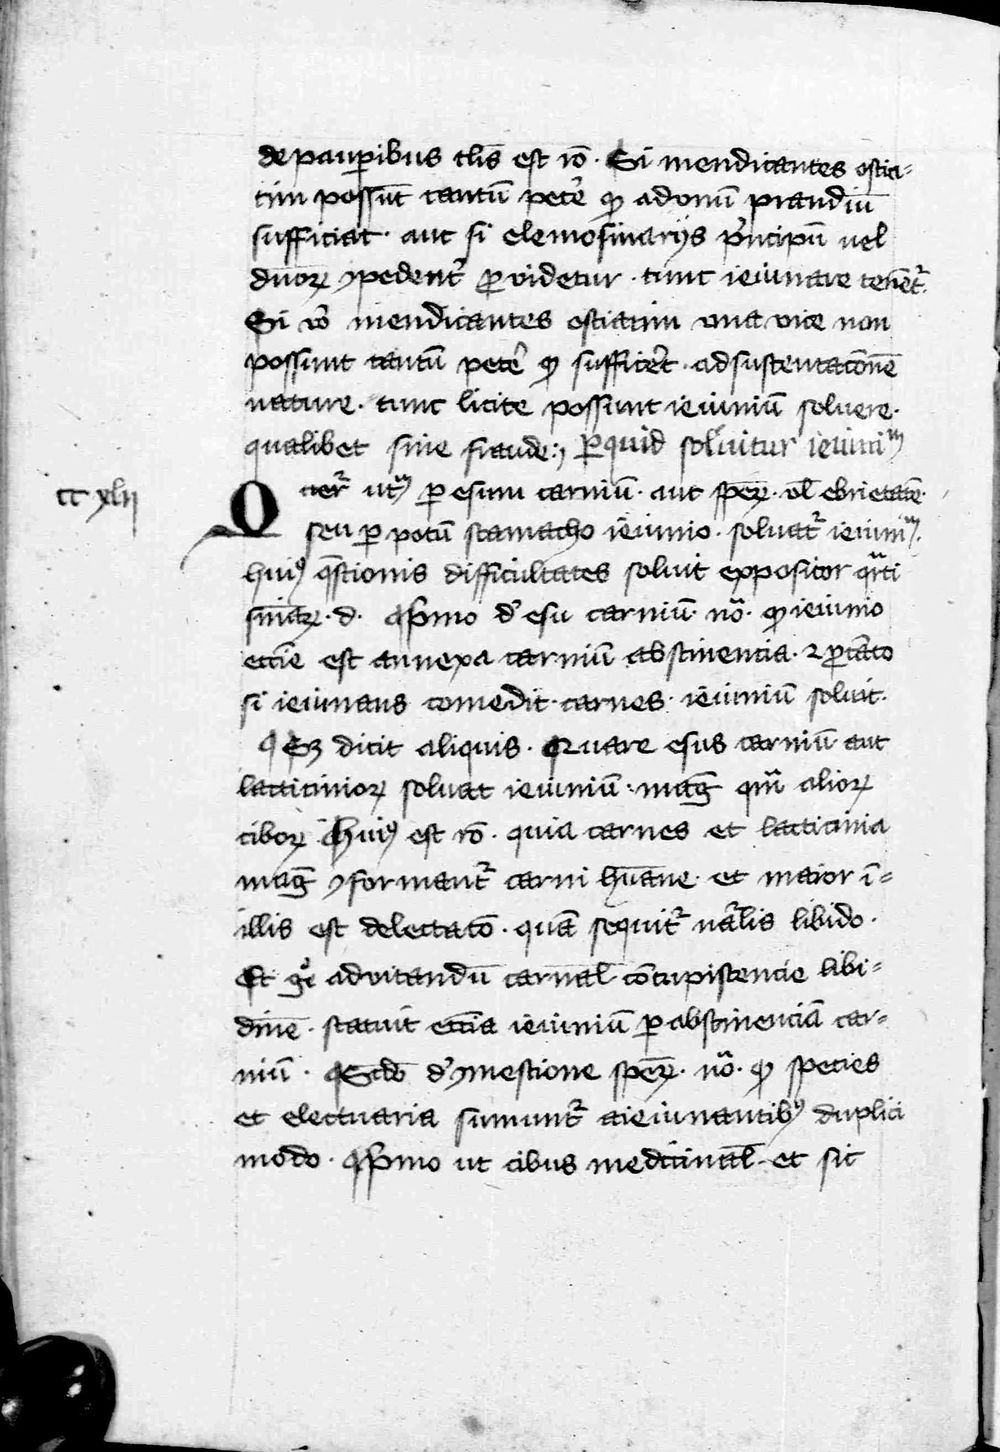 de paup̄ibus tlīs est rō. Si mendicantes ostia-
tim possūt tantū petē̄ ꝙ ad vnū prandiū
sufficiat. aut si elemosinariys p̄ncipū uel
dn̄oꝝ ꝯpedent᷑ ꝓvidetur. tunc ieiunare tenēt᷑.
Si v̄o mendicantes ostiatim vna vice non
possunt tantū petē̄ ꝙ sufficē̄t. ad sustentacōnē
nature. tunc licite possunt ieiuniū soluere.
qualibet sine fraude:, ꝑ quid soluitur ieiuniᵐ
cc xlii
Q uer᷑ utᵐ ꝑ esum carniū. aut spēꝝ. vl̄ ebrietatē.
seu ꝑ potū stamacho ieiunio. soluat᷑ ieiuniᵐ.
huiꝰ qs̄tionis difficultates soluit exposicor qᵃrti
sn̄iaꝝ. d. ¶ p̄mo d̓ esu carniū. nōᵃ. ꝙ ieiunio
ecc̄ie est annexa carniū abstinencia. ⁊ ꝓtāto
si ieiunans comedit. carnes. ieiuniū soluit.
¶ Sꝫ dicit aliquis. Quare esus carniū aut
lacticinioꝝ soluat ieiuniū. maḡ qᵃm alioꝝ
ciboꝝ ¶ huiꝰ est rō. quia carnes et lacticinia
maḡ ꝯformant᷑ carni hūane. et maior ī-
illis est delectacō. quā sequit᷑ nᵃlis libido.
Et gͦ ad vitandū carnal̄ concupiscencie libi-
dinē. statuit ecc̄ia ieiuniū ꝑ abstinenciā car-
niū. ¶ Scdō d̓ ꝯmestione spēꝝ. nōᵃ. ꝙ species
et electuaria sumunt᷑ a ieiunantibꝰ duplici
modo. ¶ p̄mo ut cibus medicinal̄. et sic